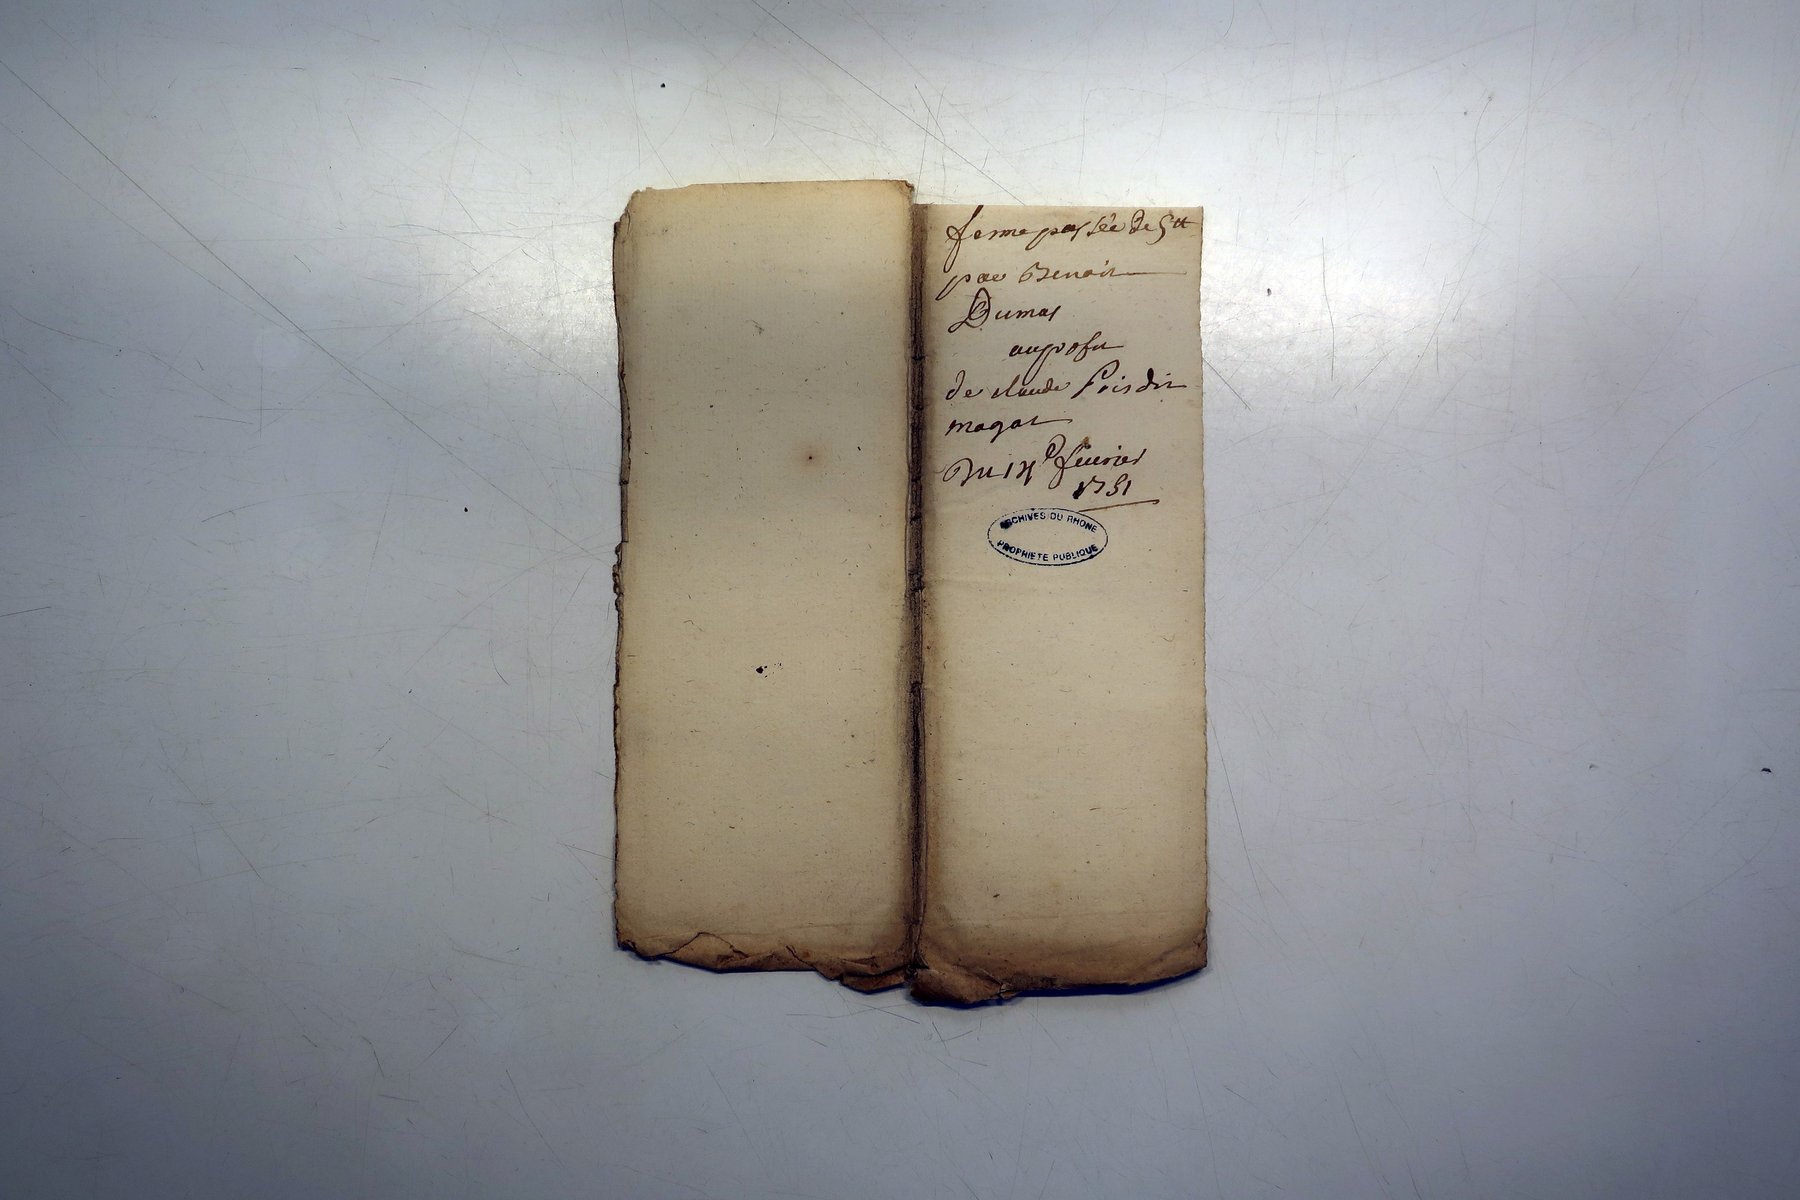 ferme passée de 5tt
par Benoit
Dumas
auprofit
de claude Poisdit
magat
Du fevrier
1751
ARCHIVES DU RHONE
PROPRIETE PUBLIQUE